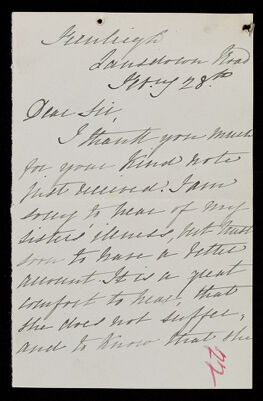 Kenleigh
Lansdown Road
Feby 28th
Dear Sir,
I thank you much
for your kind note
just received. I am
sorry to hear of my
sisters illness, but trust
soon to have a better
account. It is a great
comfort to hear, that
she does not suffer,
and to know that she
22